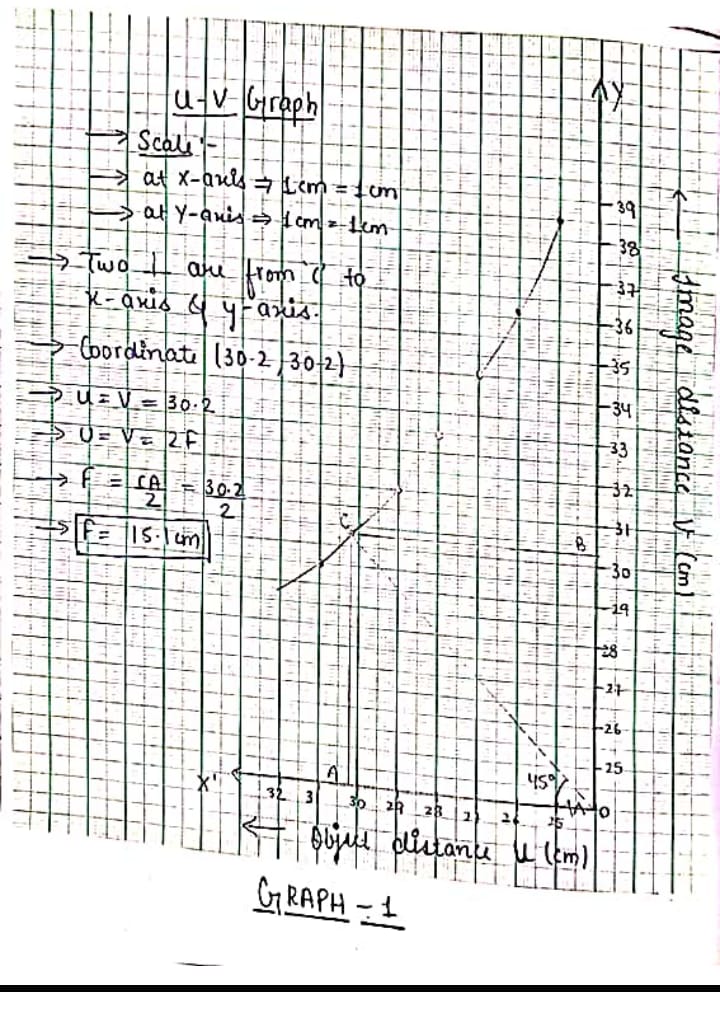 U-V Graph
→ Scale :-
→ at X-axis ⇒ 1cm = 1cm
→ at Y-axis ⇒ 1cm = 1cm
→ Two ⊥ are from 'C' to
x-axis & y-axis.
→ Coordinate (30.2, 30.2)
→ u = v = 30.2
→ U = V = 2F
→ f = CA/2 = 30.2/2
→ f = 15.1cm
Y
39
38
37
36
35
34
33
32
31
30
19
28
27
26
25
Image distance V (cm)
C
B
A
45°
X'
32 3 30 29 28 2 26 25 O
← Object distance u (cm)
GRAPH - 1